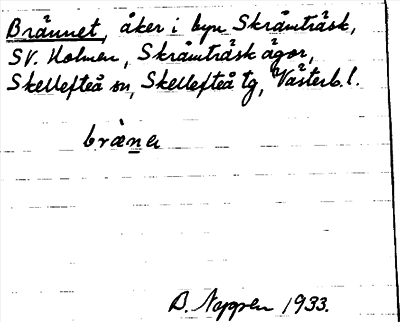 Brännet, åker i byn Skråmträsk,
SV. Holmen, Skråmträsk ägor,
Skellefteå sn, Skellefteå tg, Västerb. l.
bræna
B. 1933.